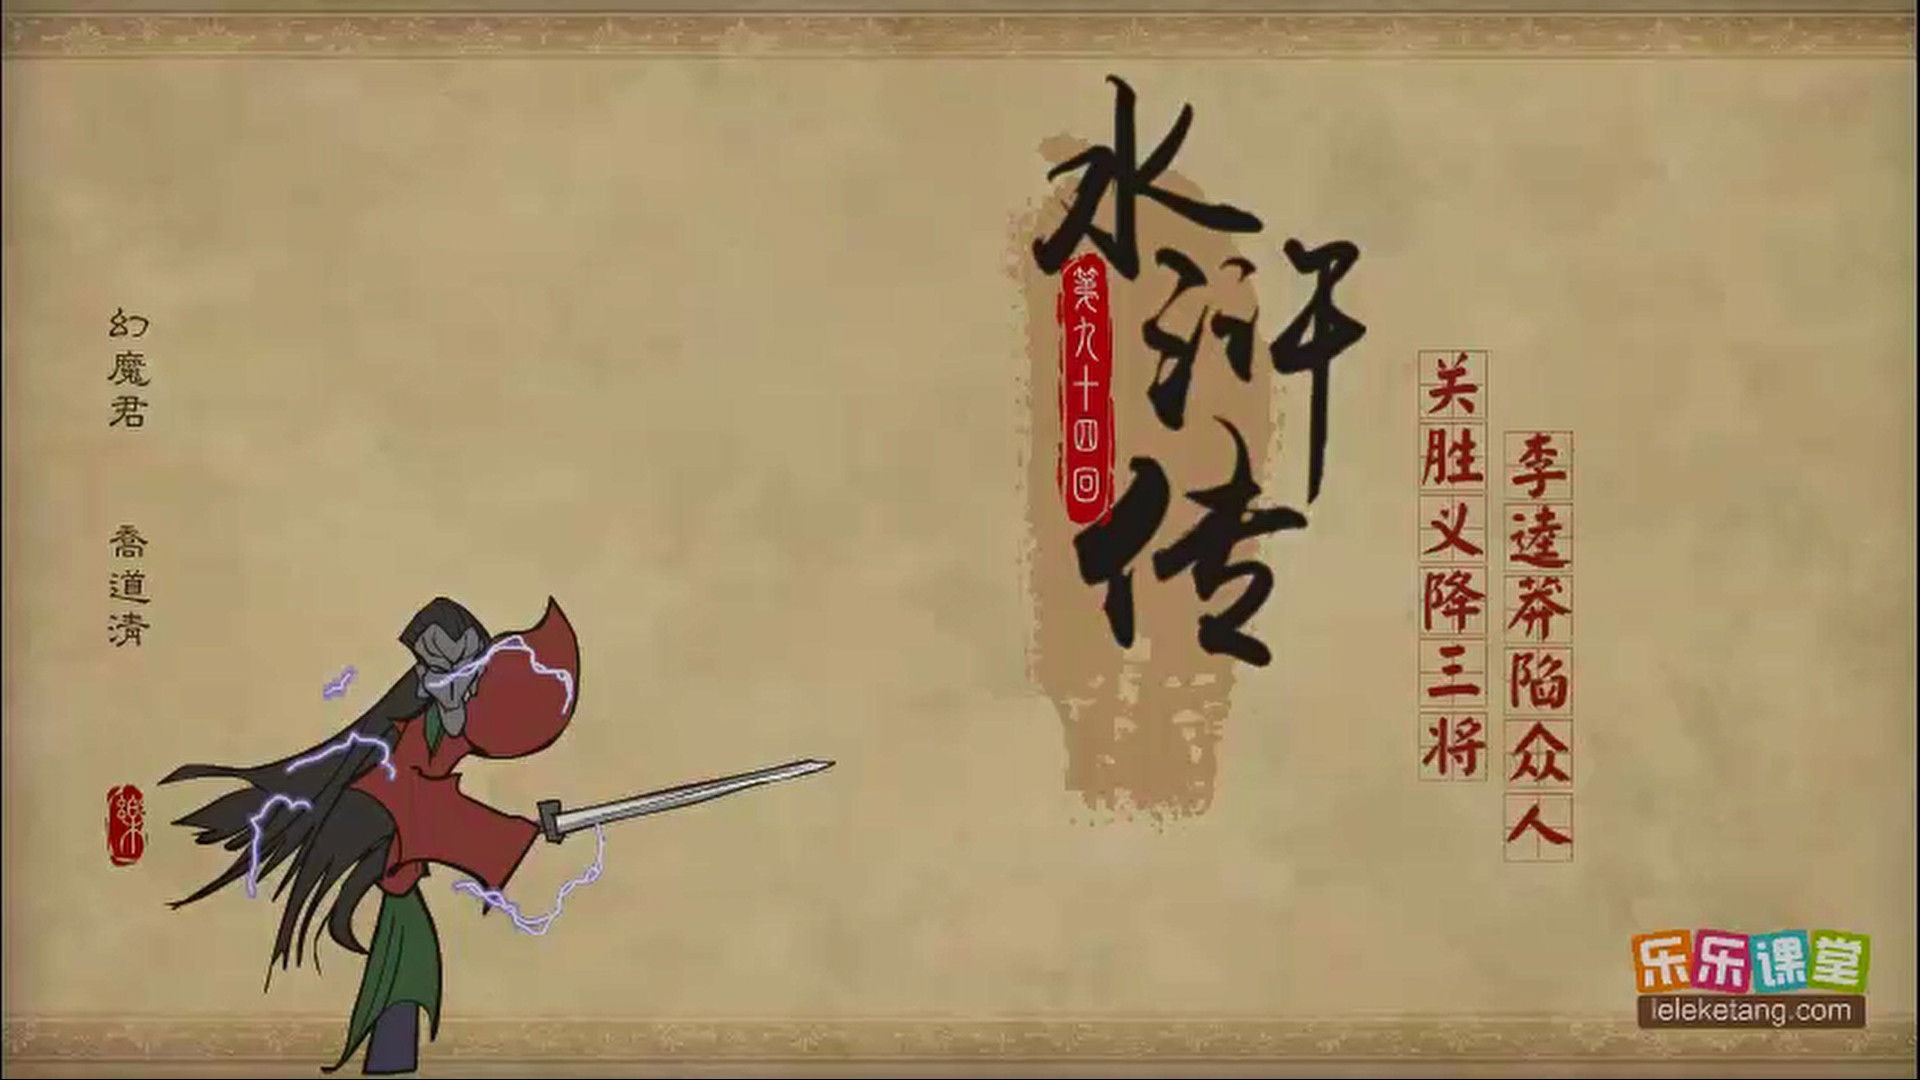 水浒传
第九十四回
关胜义降三将
李逵莽陷众人
幻魔君
喬道清
樂
乐乐课堂
leleketang.com